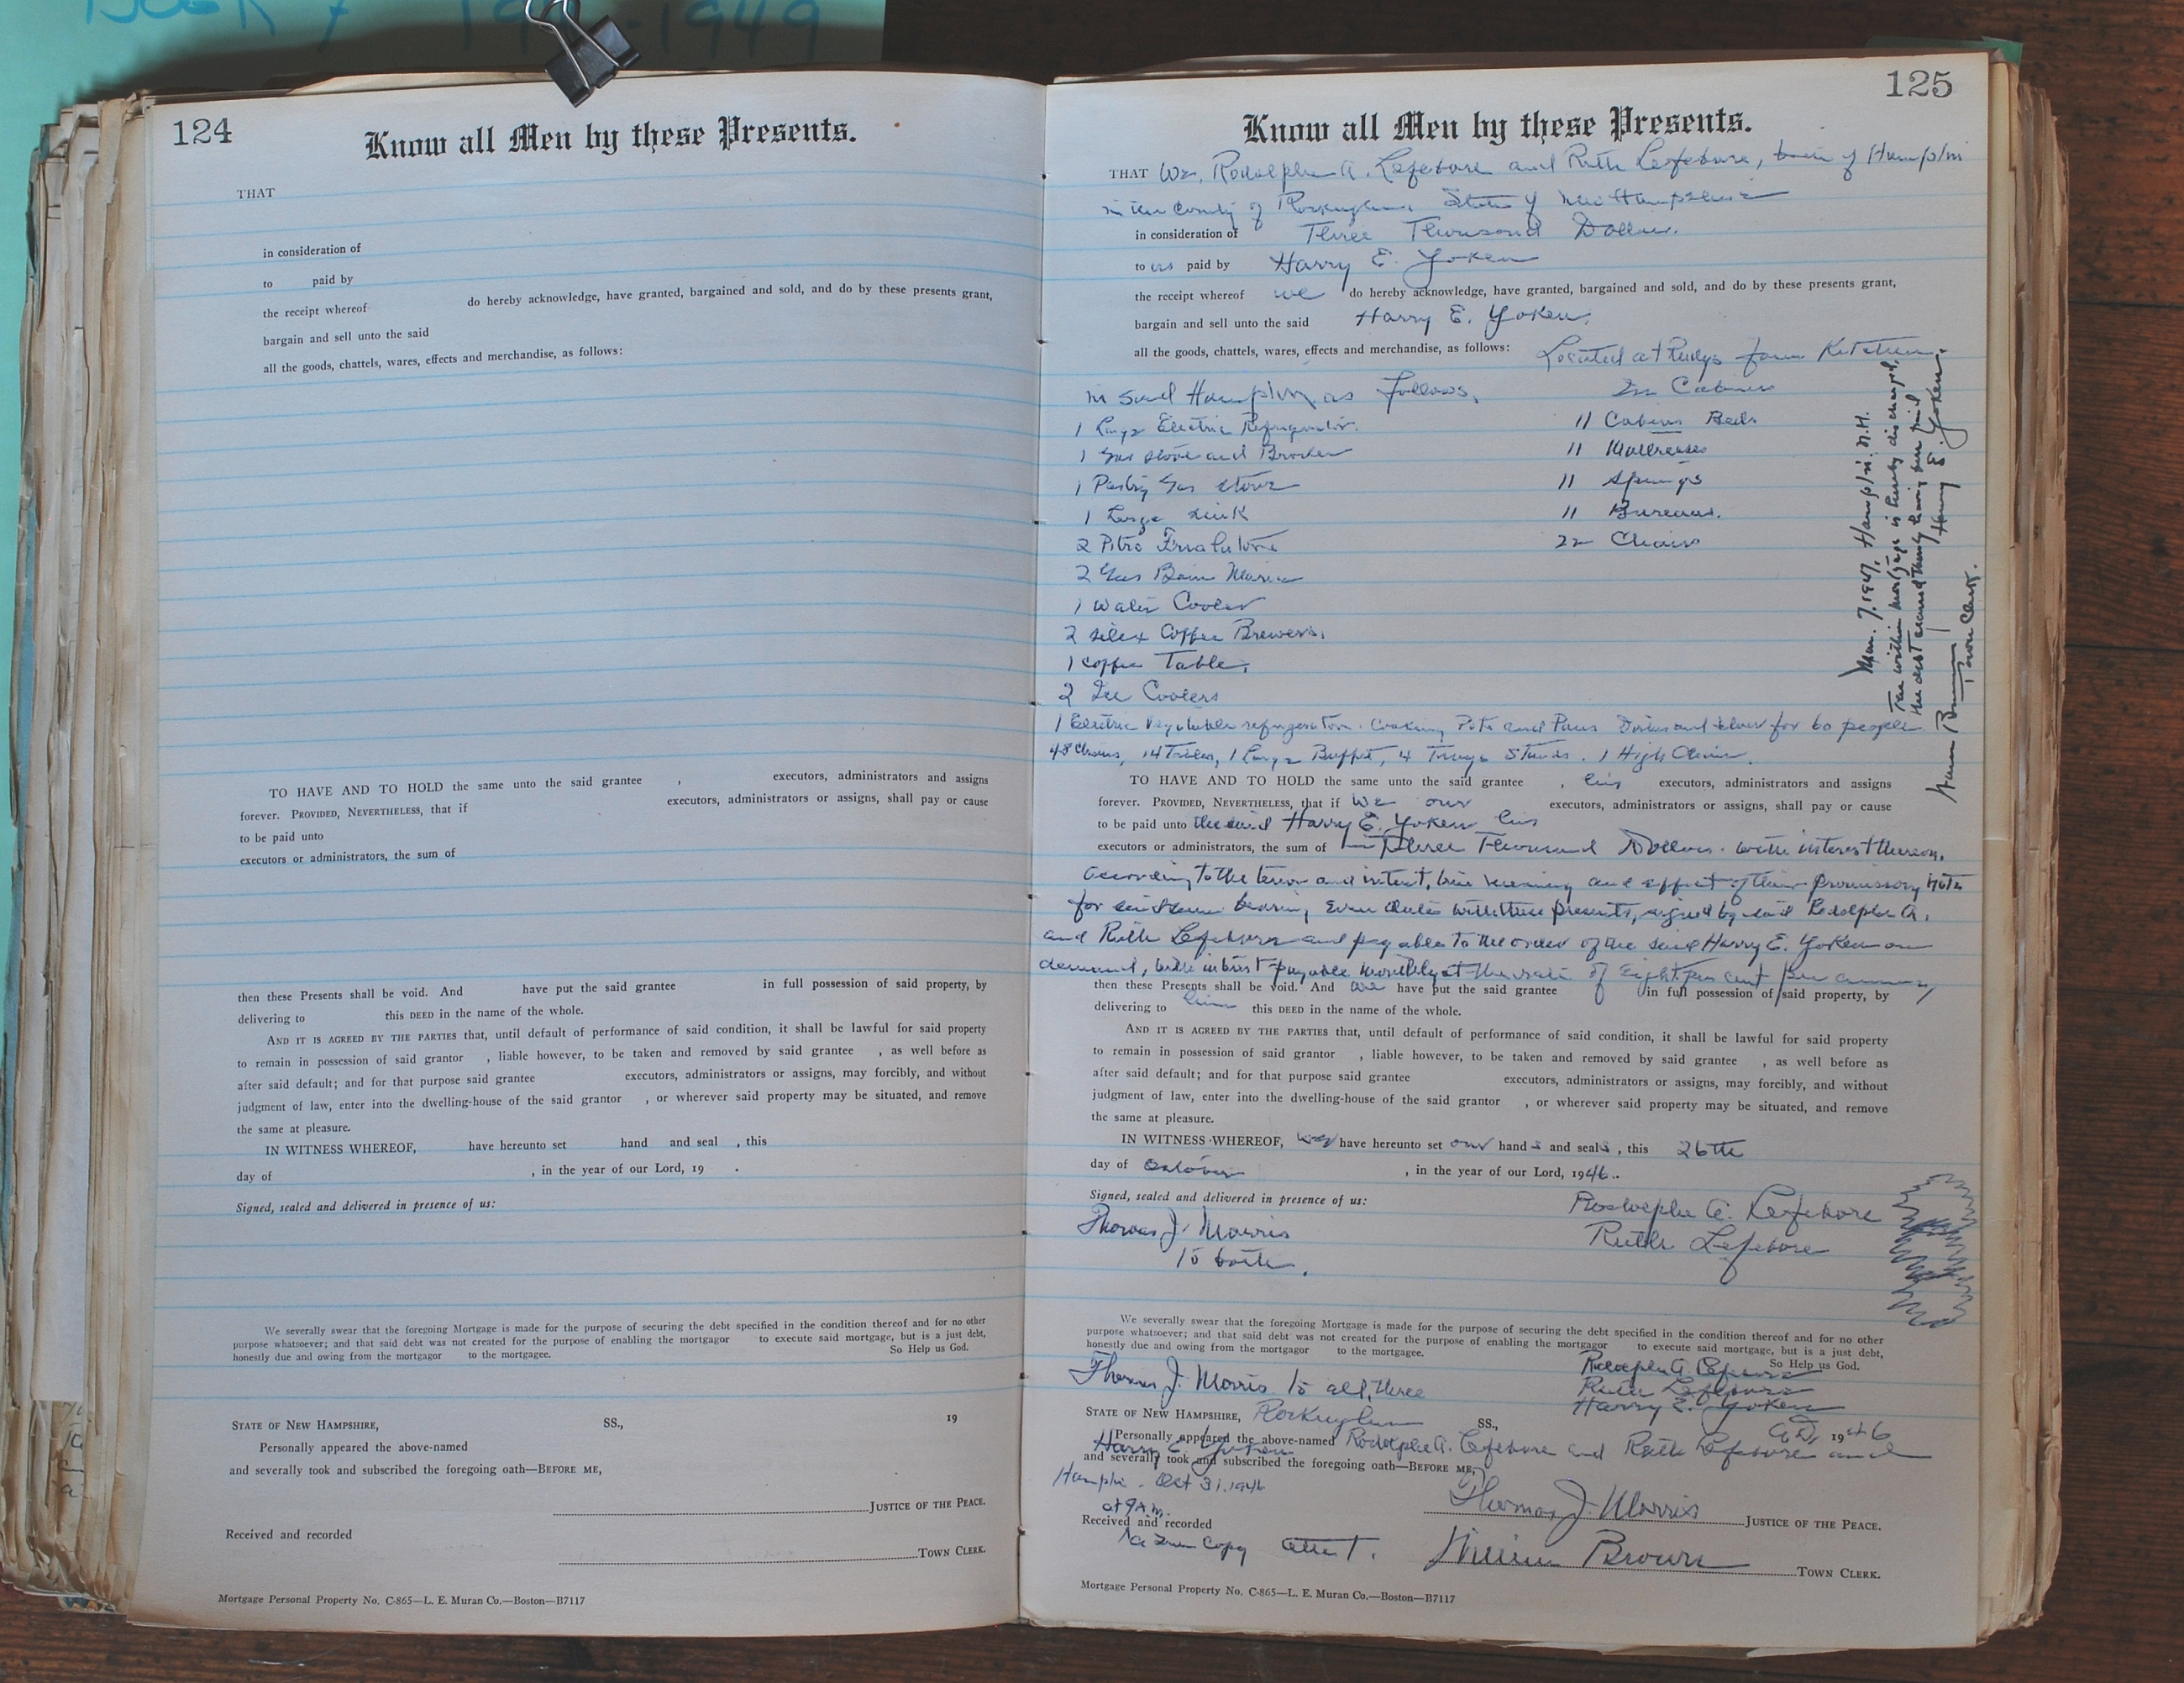 1949
124
Know all Men by these Presents.
THAT
in consideration of
to paid by
the receipt whereof do hereby acknowledge, have granted, bargained and sold, and do by these presents grant,
bargain and sell unto the said
all the goods, chattels, wares, effects and merchandise, as follows:
TO HAVE AND TO HOLD the same unto the said grantee , executors, administrators and assigns
forever. PROVIDED, NEVERTHELESS, that if executors, administrators or assigns, shall pay or cause
to be paid unto
executors or administrators, the sum of
then these Presents shall be void. And have put the said grantee in full possession of said property, by
delivering to this DEED in the name of the whole.
AND IT IS AGREED BY THE PARTIES that, until default of performance of said condition, it shall be lawful for said property
to remain in possession of said grantor , liable however, to be taken and removed by said grantee , as well before as
after said default; and for that purpose said grantee executors, administrators or assigns, may forcibly, and without
judgment of law, enter into the dwelling-house of the said grantor , or wherever said property may be situated, and remove
the same at pleasure.
IN WITNESS WHEREOF, have hereunto set hand and seal , this
day of , in the year of our Lord, 19 .
Signed, sealed and delivered in presence of us:
We severally swear that the foregoing Mortgage is made for the purpose of securing the debt specified in the condition thereof and for no other
purpose whatsoever; and that said debt was not created for the purpose of enabling the mortgagor to execute said mortgage, but is a just debt,
honestly due and owing from the mortgagor to the mortgagee. So Help us God.
STATE OF NEW HAMPSHIRE, SS., 19
Personally appeared the above-named
and severally took and subscribed the foregoing oath—BEFORE ME,
JUSTICE OF THE PEACE.
Received and recorded
TOWN CLERK.
Mortgage Personal Property No. C-865—L. E. Muran Co.—Boston—B7117
125
Know all Men by these Presents.
THAT We, Rodolphe A. Lefebvre and Ruth Lefebvre, both of Hampton
in the County of Rockingham, State of New Hampshire
in consideration of Three Thousand Dollars.
to us paid by Harry E. Yoken
the receipt whereof we do hereby acknowledge, have granted, bargained and sold, and do by these presents grant,
bargain and sell unto the said Harry E. Yoken.
all the goods, chattels, wares, effects and merchandise, as follows: Located at Rudys farm Kitchen.
in said Hampton as follows, In Cabins
1 Large Electric Refrigerator. 11 Cabins Beds
1 Gas stove and Broiler 11 Mattresses
1 Pastry Gas Stove 11 Springs
1 Large Sink 11 Bureaus.
2 22 Chairs
2 Gas Bain Marie
1 Water Cooler
2 Silex Coffee Brewers.
1 Coffee Table.
2 Ice Coolers
1 Electric Vegetable refrigerator. Cooking Pots and Pans Dishes and silver for 60 people
48 Chairs, 14 Tables, 1 Large Buffet, 4 Trays Stands. 1 High Chair.
Mar. 7. 1947. Hampton. N.H.
The within mortgage is hereby discharged,
the debt secured thereby having been paid
Harry E. Yoken
Brown
Town Clerk.
TO HAVE AND TO HOLD the same unto the said grantee , his executors, administrators and assigns
forever. PROVIDED, NEVERTHELESS, that if we our executors, administrators or assigns, shall pay or cause
to be paid unto the said Harry E. Yoken his
executors or administrators, the sum of Three Thousand Dollars. with interest thereon.
According to the tenor and intent, true meaning and effect of their promissory note
for said sum bearing even date with these presents, signed by said Rodolphe A.
and Ruth Lefebvre and payable to the order of the said Harry E. Yoken on
demand, with interest payable monthly at the rate of eight per cent per annum
then these Presents shall be void. And we have put the said grantee in full possession of said property, by
delivering to him this DEED in the name of the whole.
AND IT IS AGREED BY THE PARTIES that, until default of performance of said condition, it shall be lawful for said property
to remain in possession of said grantor , liable however, to be taken and removed by said grantee , as well before as
after said default; and for that purpose said grantee executors, administrators or assigns, may forcibly, and without
judgment of law, enter into the dwelling-house of the said grantor , or wherever said property may be situated, and remove
the same at pleasure.
IN WITNESS WHEREOF, we have hereunto set our hands and seals, this 26th
day of October , in the year of our Lord, 1946.
Signed, sealed and delivered in presence of us: Rodolphe A. Lefebvre
Thomas J. Morris Ruth Lefebvre
to both.
We severally swear that the foregoing Mortgage is made for the purpose of securing the debt specified in the condition thereof and for no other
purpose whatsoever; and that said debt was not created for the purpose of enabling the mortgagor to execute said mortgage, but is a just debt,
honestly due and owing from the mortgagor to the mortgagee. So Help us God.
Rodolphe A. Lefebvre
Thomas J. Morris to all three Ruth Lefebvre
Harry E. Yoken
STATE OF NEW HAMPSHIRE, Rockingham SS., A.D. 1946
Personally appeared the above-named Rodolphe A. Lefebvre and Ruth Lefebvre and
Harry E. Yoken
and severally took and subscribed the foregoing oath—BEFORE ME,
Hampton. Oct 31. 1946
at 9 A.M. Thomas J. Morris JUSTICE OF THE PEACE.
Received and recorded
A True Copy Attest. William Brown TOWN CLERK.
Mortgage Personal Property No. C-865—L. E. Muran Co.—Boston—B7117